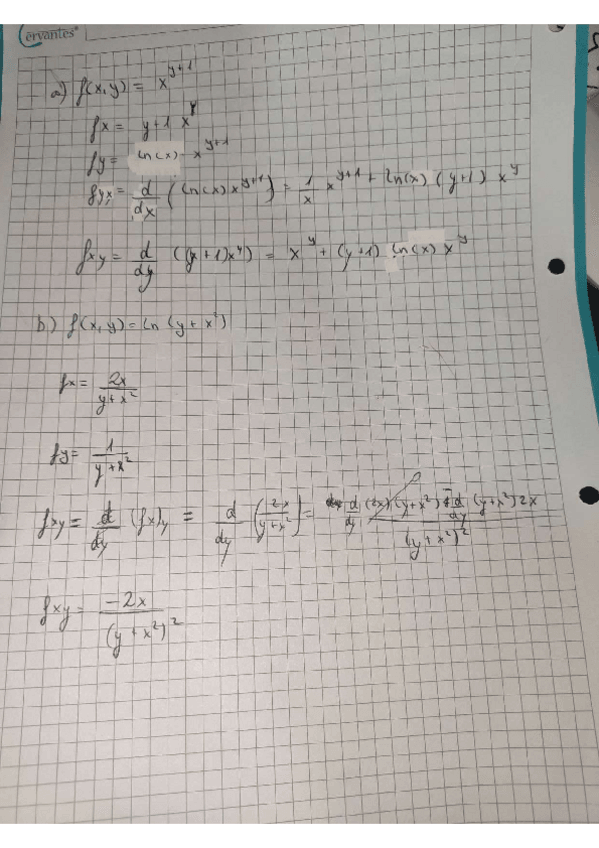 Cervantes
a) f(x,y) = x^{y+1}
fx = y+1 x^y
fy = ln(x) · x^{y+1}
fyx = d/dx (ln(x) x^{y+1}) = 1/x x^{y+1} + ln(x) (y+1) x^y
fxy = d/dy ((y+1)x^y) = x^y + (y+1) ln(x) x^y
b) f(x,y) = ln (y + x²)
fx = 2x / y+x²
fy = 1 / y+x²
fxy = d/dy (fx)y = d/dy (2x / y+x²) = d/dy (2x) (y+x²) - d/dy (y+x²) 2x / (y+x²)²
fxy = -2x / (y+x²)²